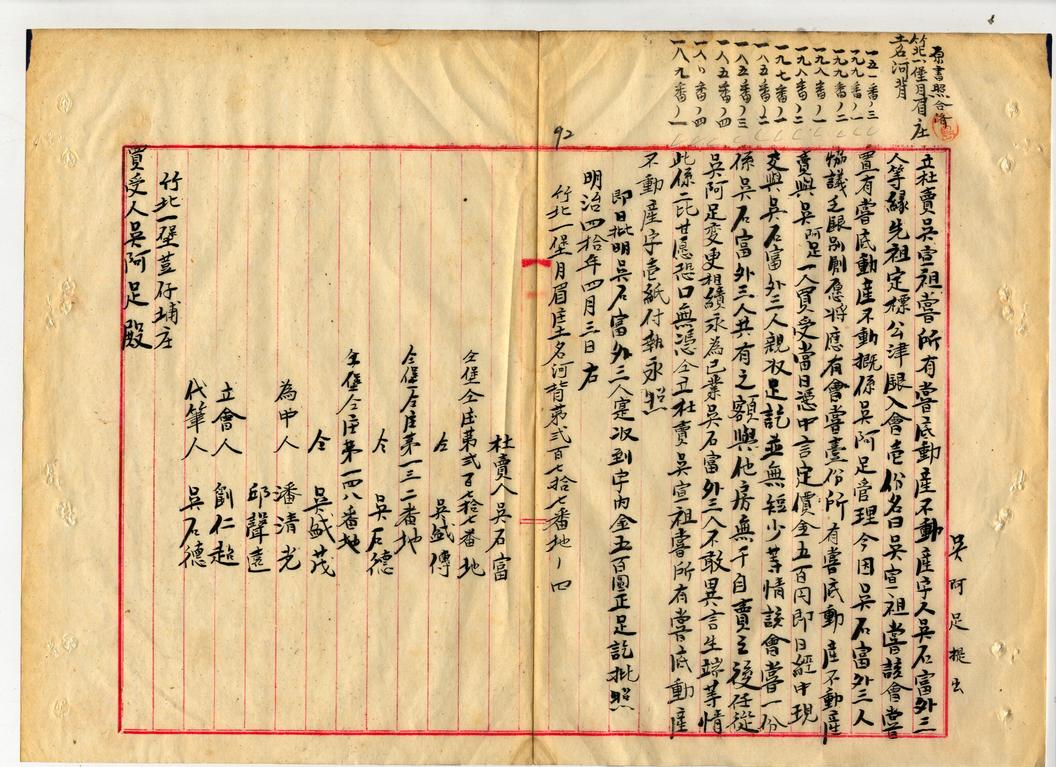 原書照合濟
竹北一堡月眉庄
土名河背
一五一番ノ三
一九九番ノ一
一九九番ノ二
一九八番ノ一
一九八番ノ二
一九七番ノ一
一八五番ノ二
一八五番ノ三
一八五番ノ四
一八八ノ四
一八九番ノ一
92
吳阿足提出
立杜賣吳宣祖嘗所有嘗底動產不動產字人吳石富外三
人等緣先祖定標公津銀入會壱份名曰吳宣祖嘗該會嘗
置有嘗底動產不動概係吳阿足管理今因吳石富外三人
協議乏銀別創應將應有會嘗壹份所有嘗底動產不動產
賣與吳阿足一人買受當日憑中言定價金五百円即日經中現
交與吳石富外三人親收足訖並無短少等情該會嘗一份
係吳石富外三人共有之額與他房無干自賣之後任從
吳阿足變更相續永為己業吳石富外三人不敢異言生端等情
此係二比甘愿恐口無憑仝立杜賣吳宣祖嘗所有嘗底動產
不動產字壱紙付執永照
即日批明吳石富外三人寔收到字內金五百圓正足訖批照
明治四拾年四月三日右
竹北一堡月眉庄土名河背第弍百七拾七番地ノ四
杜賣人吳石富
仝堡仝庄第弍百七拾七番地
仝 吳盛傳
仝堡仝庄第一三二番地
仝 吳石德
仝堡仝庄第一四八番地
仝 吳盛茂
為中人 潘清光
邱聲遠
立會人 劉仁超
代筆人 吳石德
竹北一堡荳仔埔庄
買受人吳阿足殿